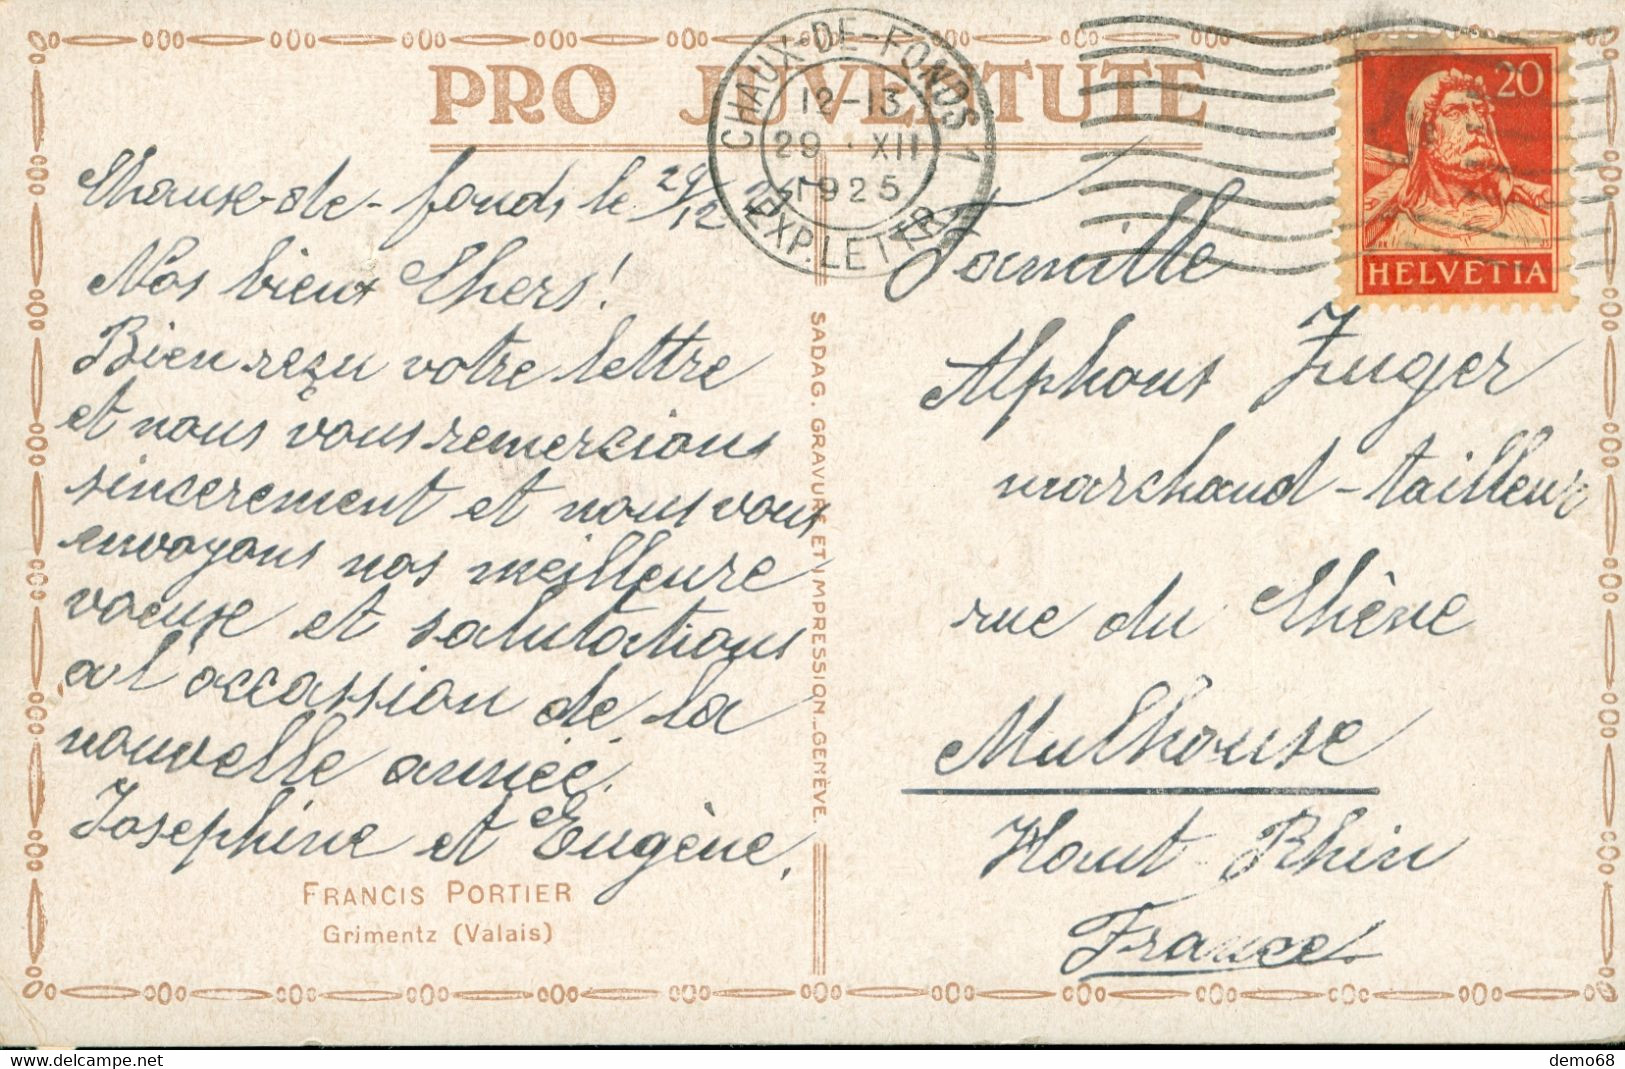 PRO JUVENTUTE
CHAUX-DE-FONDS 1
12-13
29 · XII
1925
EXP. LETTR.
20
HELVETIA
Chaux-de-fonds le 29/12 25
Nos bien Chers!
Bien reçu votre lettre
et nous vous remercions
sincerement et nous vous
envoyons nos meilleure
voeux et salutations
a l'occassion de la
nouvelle année.
Josephine et Eugène,
FRANCIS PORTIER
Grimentz (Valais)
SADAG. GRAVURE ET IMPRESSION_GENÈVE.
Famille
Alphons Zuger
marchand-tailleur
rue du Chêne
Mulhouse
Haut-Rhin
France.
demo68